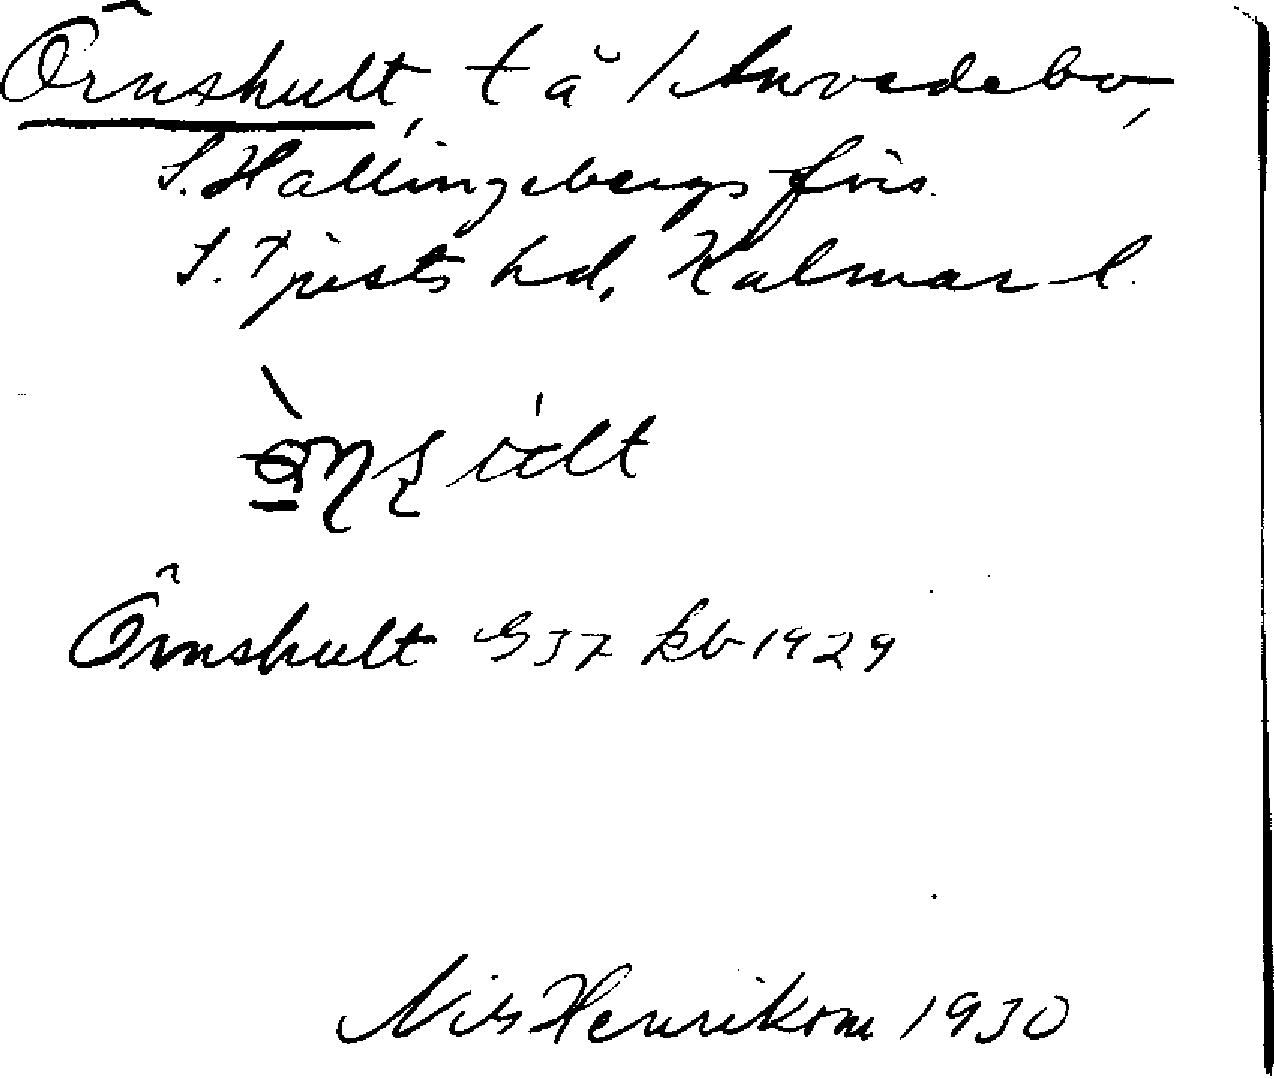 Örnshult, t å 1 Anvedebo,
S. Hallingebergs förs.
S. Tjusts hd, Kalmar l.
Örnshult G 37 kb 1929
Nils Henrikson 1930